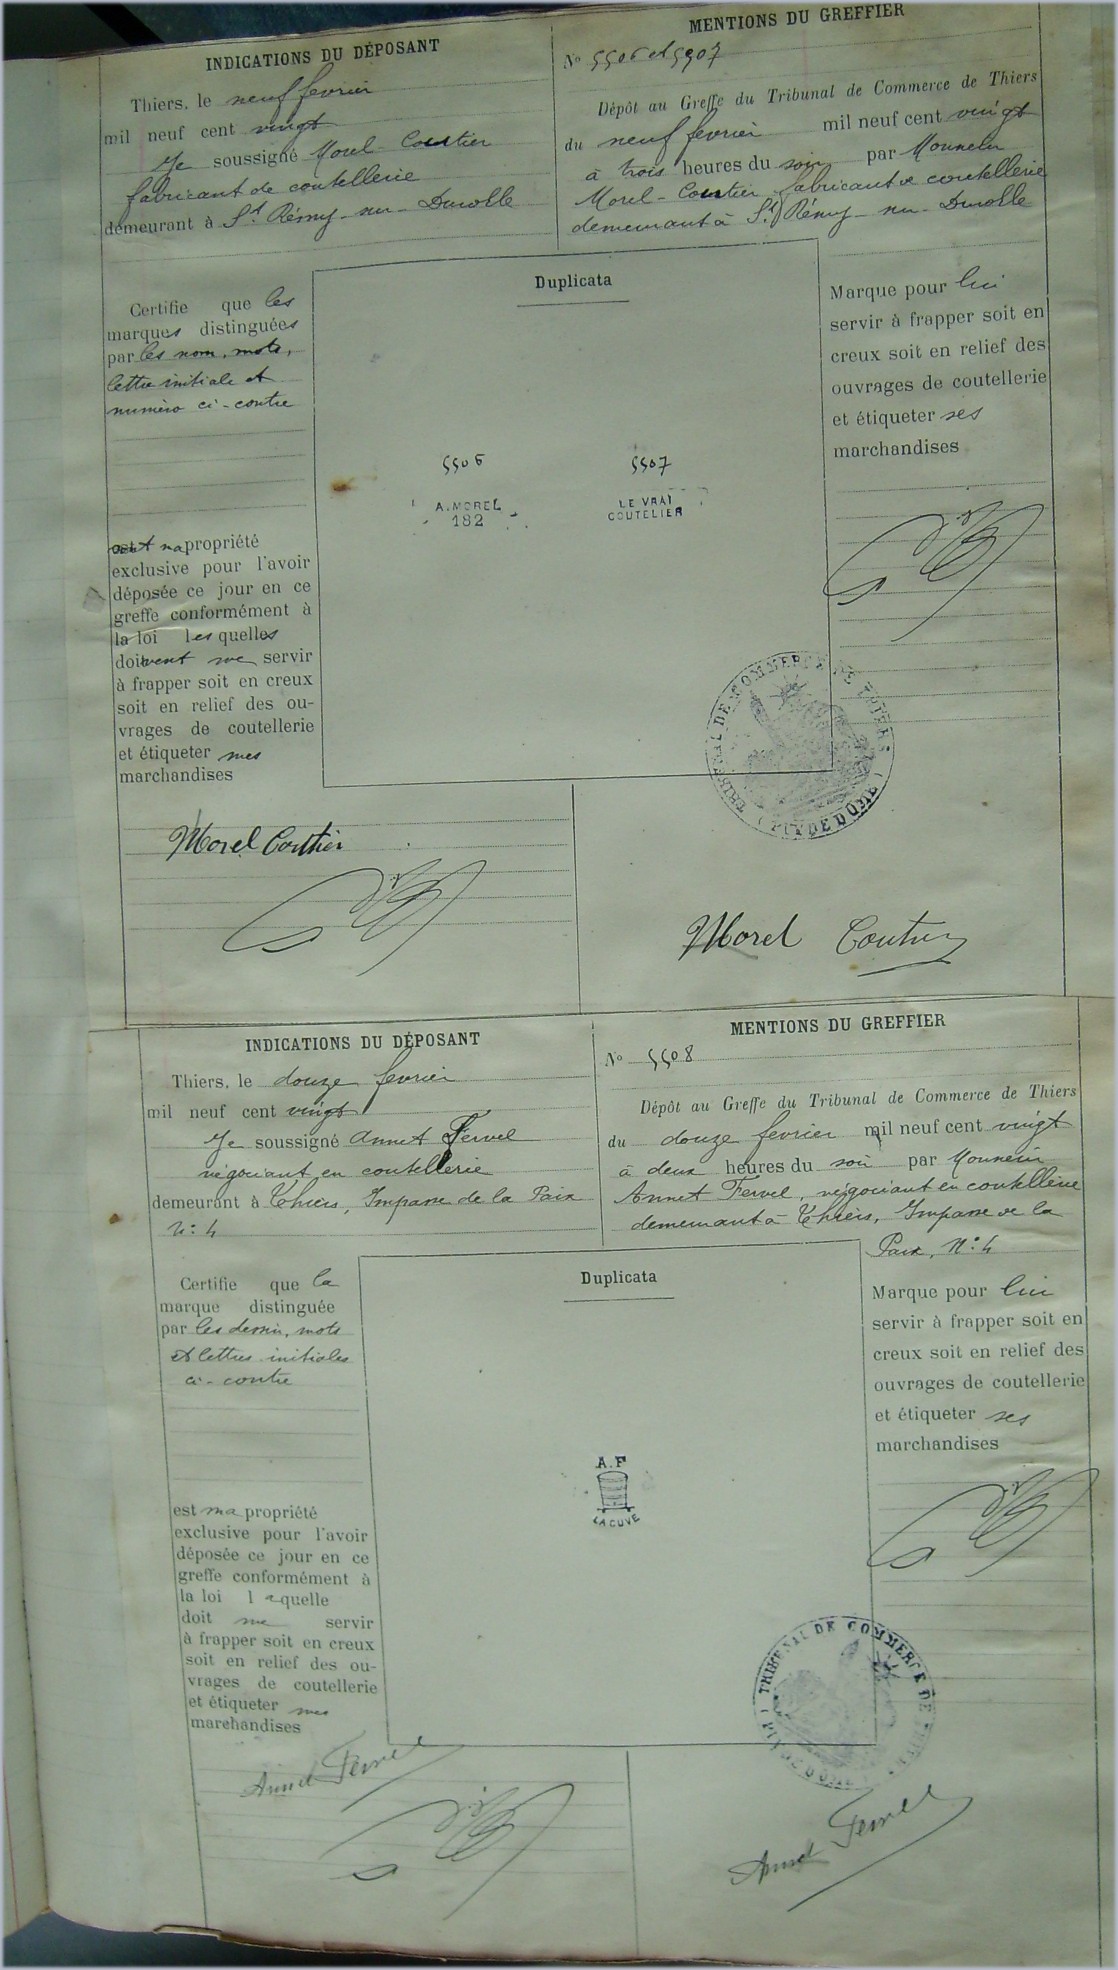 INDICATIONS DU DÉPOSANT
Thiers, le neuf fevrier
mil neuf cent vingt
Je soussigné Morel-Coutier
fabricant de coutellerie
demeurant à St Rémy-sur-Durolle
Certifie que les
marques distinguées
par les nom, mots,
lettre initiale et
numéro ci-contre
sont ma propriété
exclusive pour l'avoir
déposée ce jour en ce
greffe conformément à
la loi lesquelles
doivent me servir
à frapper soit en creux
soit en relief des ou-
vrages de coutellerie
et étiqueter mes
marchandises
Morel Coutier
MENTIONS DU GREFFIER
No 5506 et 5507
Dépôt au Greffe du Tribunal de Commerce de Thiers
du neuf fevrier mil neuf cent vingt
à trois heures du soir par Monsieur
Morel-Coutier fabricant de coutellerie
demeurant à St Rémy-sur-Durolle
Duplicata
5506
A. MOREL
182
5507
LE VRAI
COUTELIER
Marque pour lui
servir à frapper soit en
creux soit en relief des
ouvrages de coutellerie
et étiqueter ses
marchandises
TRIBUNAL DE COMMERCE DE THIERS
(PUY DE DOME)
Morel Coutier
INDICATIONS DU DÉPOSANT
Thiers, le douze fevrier
mil neuf cent vingt
Je soussigné Annet Fervel
négociant en coutellerie
demeurant à Thiers, Impasse de la Paix
N: 4
Certifie que la
marque distinguée
par les dessin, mots
et lettres initiales
ci-contre
est ma propriété
exclusive pour l'avoir
déposée ce jour en ce
greffe conformément à
la loi laquelle
doit me servir
à frapper soit en creux
soit en relief des ou-
vrages de coutellerie
et étiqueter mes
marchandises
Annet Fervel
MENTIONS DU GREFFIER
No 5508
Dépôt au Greffe du Tribunal de Commerce de Thiers
du douze fevrier mil neuf cent vingt
à deux heures du soir par Monsieur
Annet Fervel, négociant en coutellerie
demeurant à Thiers, Impasse de la
Paix, N: 4
Duplicata
A.F
LA CUVE
Marque pour lui
servir à frapper soit en
creux soit en relief des
ouvrages de coutellerie
et étiqueter ses
marchandises
TRIBUNAL DE COMMERCE DE THIERS
(PUY DE DOME)
Annet Fervel